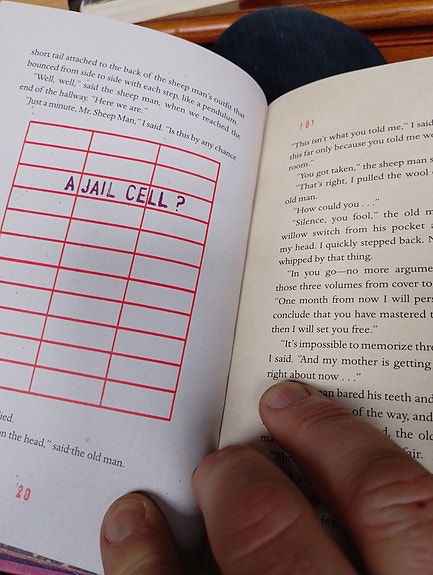 short tail attached to the back of the sheep man's outfit that
bounced from side to side with each step, like a pendulum.
"Well, well," said the sheep man, when we reached the
end of the hallway. "Here we are."
"Just a minute, Mr. Sheep Man," I said. "Is this by any chance
A JAIL CELL?
ied.
n the head," said the old man.
20
(8)
"This isn't what you told me," I said
this far only because you told me we
room."
"You got taken," the sheep man s
"That's right, I pulled the wool
old man.
"How could you . . ."
"Silence, you fool," the old m
willow switch from his pocket a
my head. I quickly stepped back. N
whipped by that thing.
"In you go—no more argume
those three volumes from cover to
"One month from now I will pers
conclude that you have mastered t
then I will set you free."
"It's impossible to memorize thre
I said. "And my mother is getting
right about now . . ."
an bared his teeth and
of the way, and
d, the old
ma
fair.